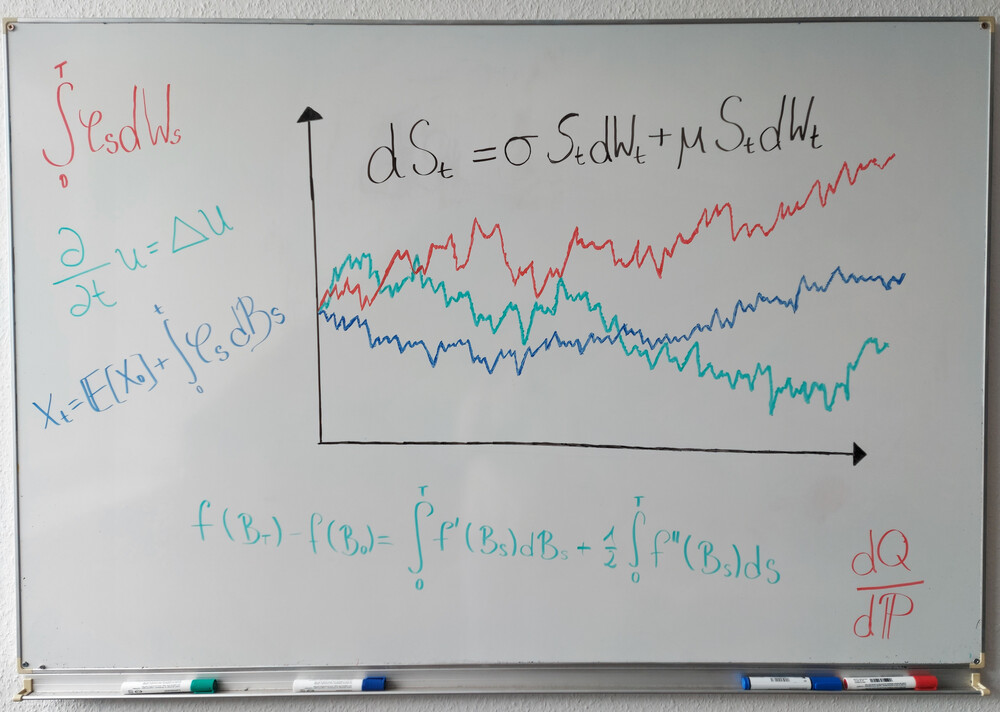 ∫₀ᵀ φₛdWₛ
dSₜ = σSₜdWₜ + μSₜdWₜ
∂/∂t u = Δu
Xₜ = 𝔼[X₀] + ∫₀ᵗ φₛdBₛ
f(B_T) - f(B₀) = ∫₀ᵀ f'(Bₛ)dBₛ + 1/2 ∫₀ᵀ f''(Bₛ)ds
dQ/dℙ